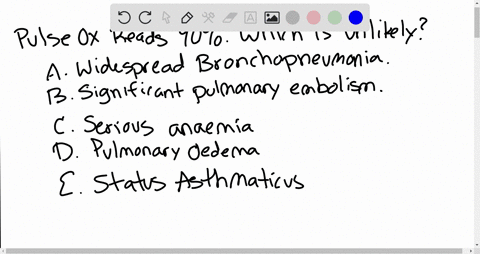 Pulse Ox Reads 90%. Which is unlikely?
A. Widespread Bronchopneumonia.
B. Significant pulmonary embolism.
C. Serious anaemia
D. Pulmonary Oedema
E. Status Asthmaticus